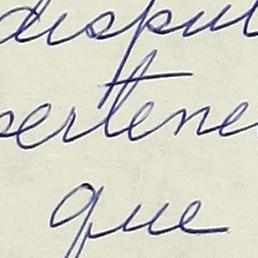 disput
pertene
que